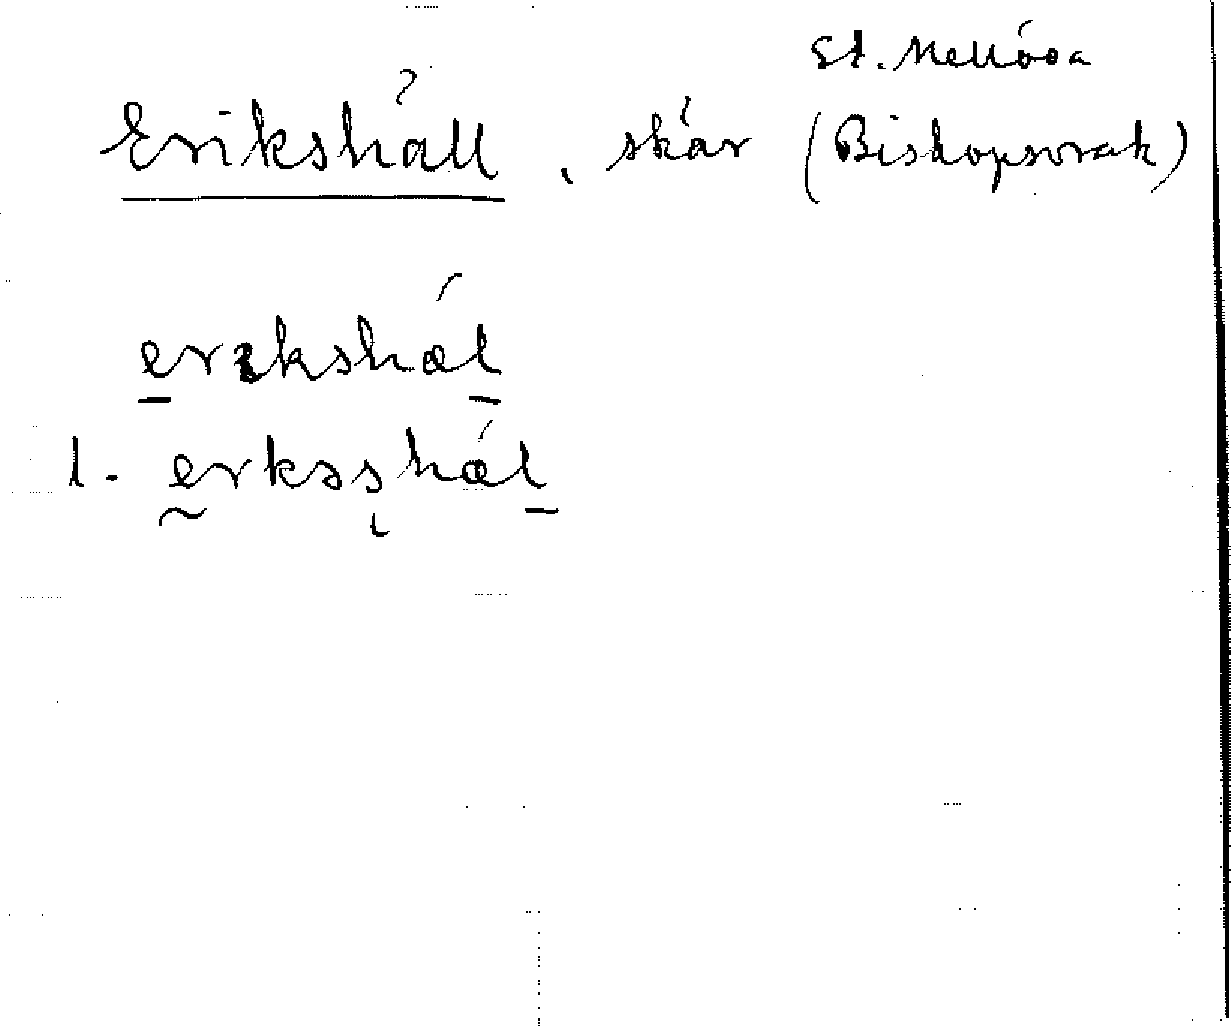 St. Mellösa
Erikshäll, skär (Biskopsvrak)
erıkshæl
l. erksshæl